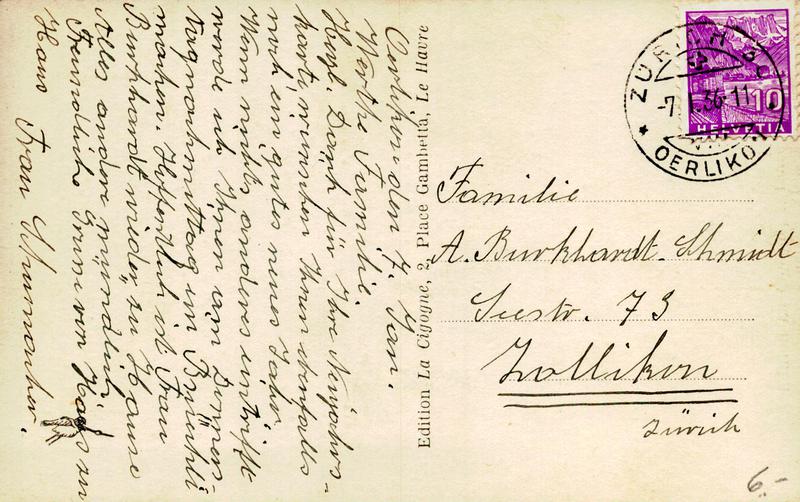 Oerlikon den 7. Jan.
Werthe Familie.
Herzl. Dank für Ihre Neujahrs-
karte, wünschen Ihnen ebenfalls
noch ein gutes neues Jahr.
Wenn nichts anderes eintrifft
werde ich Ihnen am Donners-
tag nachmittag im
machen. Hoffentlich ist Frau
Burkhardt wieder zu Hause
Alles andere mündlich
Freundliche Grüsse von Haus zu
Haus Frau Schumacher.
Edition La Cigogne, 2, Place Gambetta, Le Havre
ZÜRICH
-7. I. 36-11
OERLIKON
10
HELVETIA
Familie
A. Burkhardt-Schmidt
Seestr. 73
Zollikon
Zürich
6.-